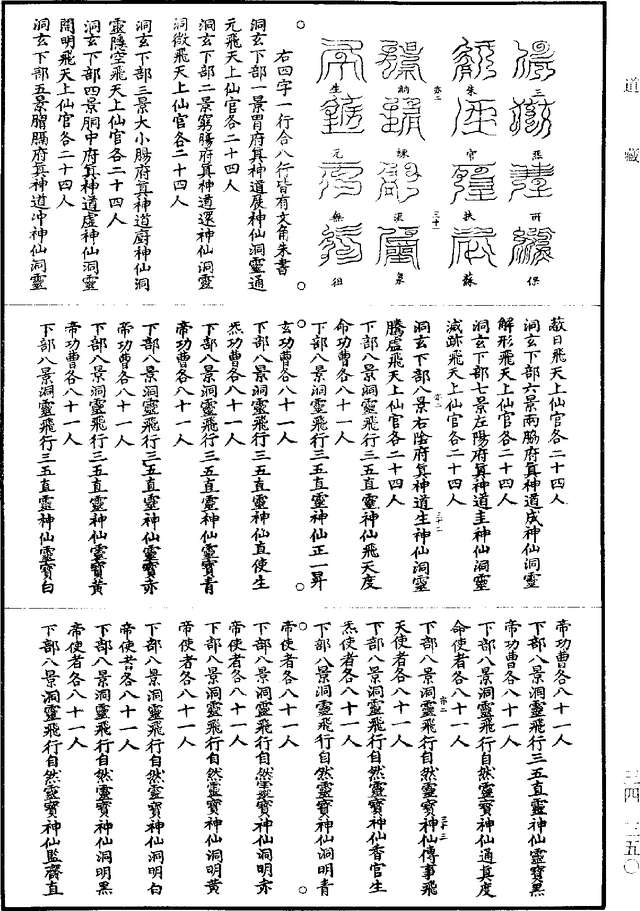 道藏
三惡所保
朱官扶蘇
亦二 三十一
納練泉
生元無徂
右四字一行合八行皆有文角朱書
洞玄下部一景胃府真神道展神仙洞靈通
元飛天上仙官各二十四人
洞玄下部二景窮腸府真神道還神仙洞靈
洞微飛天上仙官各二十四人
洞玄下部三景大小腸府真神道廚神仙洞
靈隱空飛天上仙官各二十四人
洞玄下部四景胴中府真神道虛神仙洞靈
開明飛天上仙官各二十四人
洞玄下部五景膈府真神道冲神仙洞靈
蔽日飛天上仙官各二十四人
洞玄下部六景兩脇府真神道成神仙洞靈
解形飛天上仙官各二十四人
洞玄下部七景左陽府真神道圭神仙洞靈
滅跡飛天上仙官各二十四人
亦二 三十二
洞玄下部八景右陰府真神道生神仙洞靈
騰虛飛天上仙官各二十四人
下部八景洞靈飛行三五直靈神仙飛天度
命功曹各八十一人
下部八景洞靈飛行三五直靈神仙正一昇
玄功曹各八十一人
下部八景洞靈飛行三五直靈神仙直使生
炁功曹各八十一人
下部八景洞靈飛行三五直靈神仙靈寶青
帝功曹各八十一人
下部八景洞靈飛行三五直靈神仙靈寶赤
帝功曹各八十一人
下部八景洞靈飛行三五直靈神仙靈寶黃
帝功曹各八十一人
下部八景洞靈飛行三五直靈神仙靈寶白
帝功曹各八十一人
下部八景洞靈飛行三五直靈神仙靈寶黑
帝功曹各八十一人
下部八景洞靈飛行自然靈寶神仙通真度
命使者各八十一人
亦二 三十三
下部八景洞靈飛行自然靈寶神仙傳事飛
天使者各八十一人
下部八景洞靈飛行自然靈寶神仙香官生
炁使者各八十一人
下部八景洞靈飛行自然靈寶神仙洞明青
帝使者各八十一人
下部八景洞靈飛行自然靈寶神仙洞明赤
帝使者各八十一人
下部八景洞靈飛行自然靈寶神仙洞明黃
帝使者各八十一人
下部八景洞靈飛行自然靈寶神仙洞明白
帝使者各八十一人
下部八景洞靈飛行自然靈寶神仙洞明黑
帝使者各八十一人
下部八景洞靈飛行自然靈寶神仙監齋直
三四—三五〇